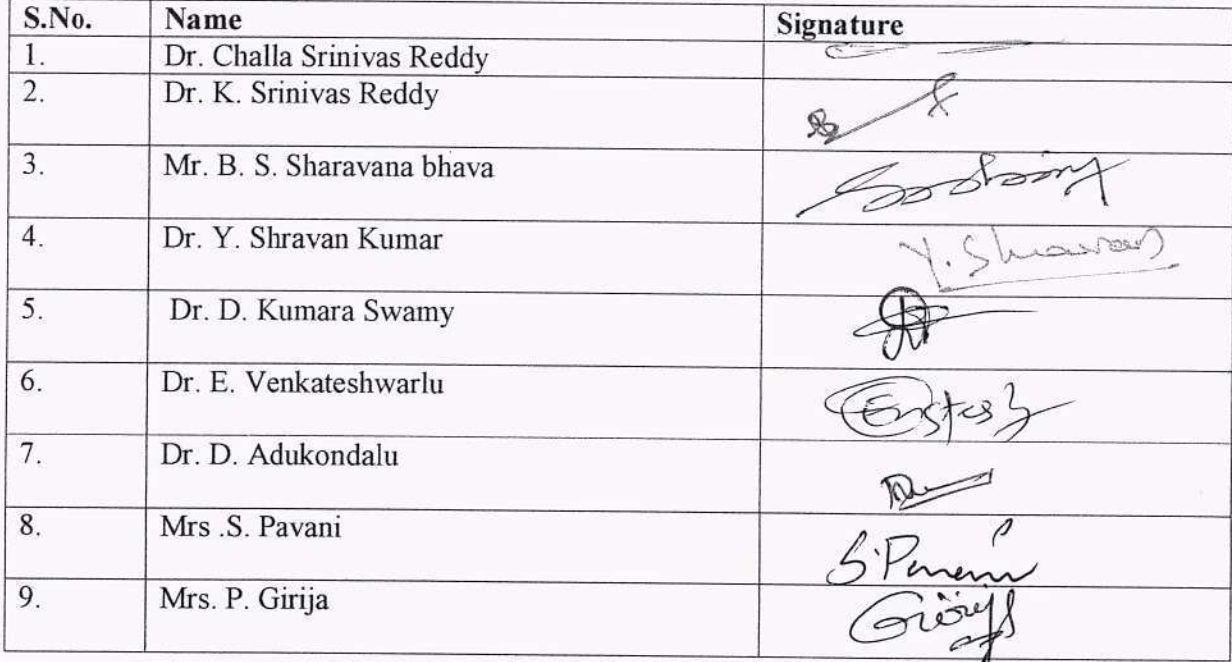 S.No. Name Signature
1. Dr. Challa Srinivas Reddy
2. Dr. K. Srinivas Reddy
3. Mr. B. S. Sharavana bhava
4. Dr. Y. Shravan Kumar Y. Shravan
5. Dr. D. Kumara Swamy
6. Dr. E. Venkateshwarlu
7. Dr. D. Adukondalu
8. Mrs .S. Pavani S. Pavani
9. Mrs. P. Girija